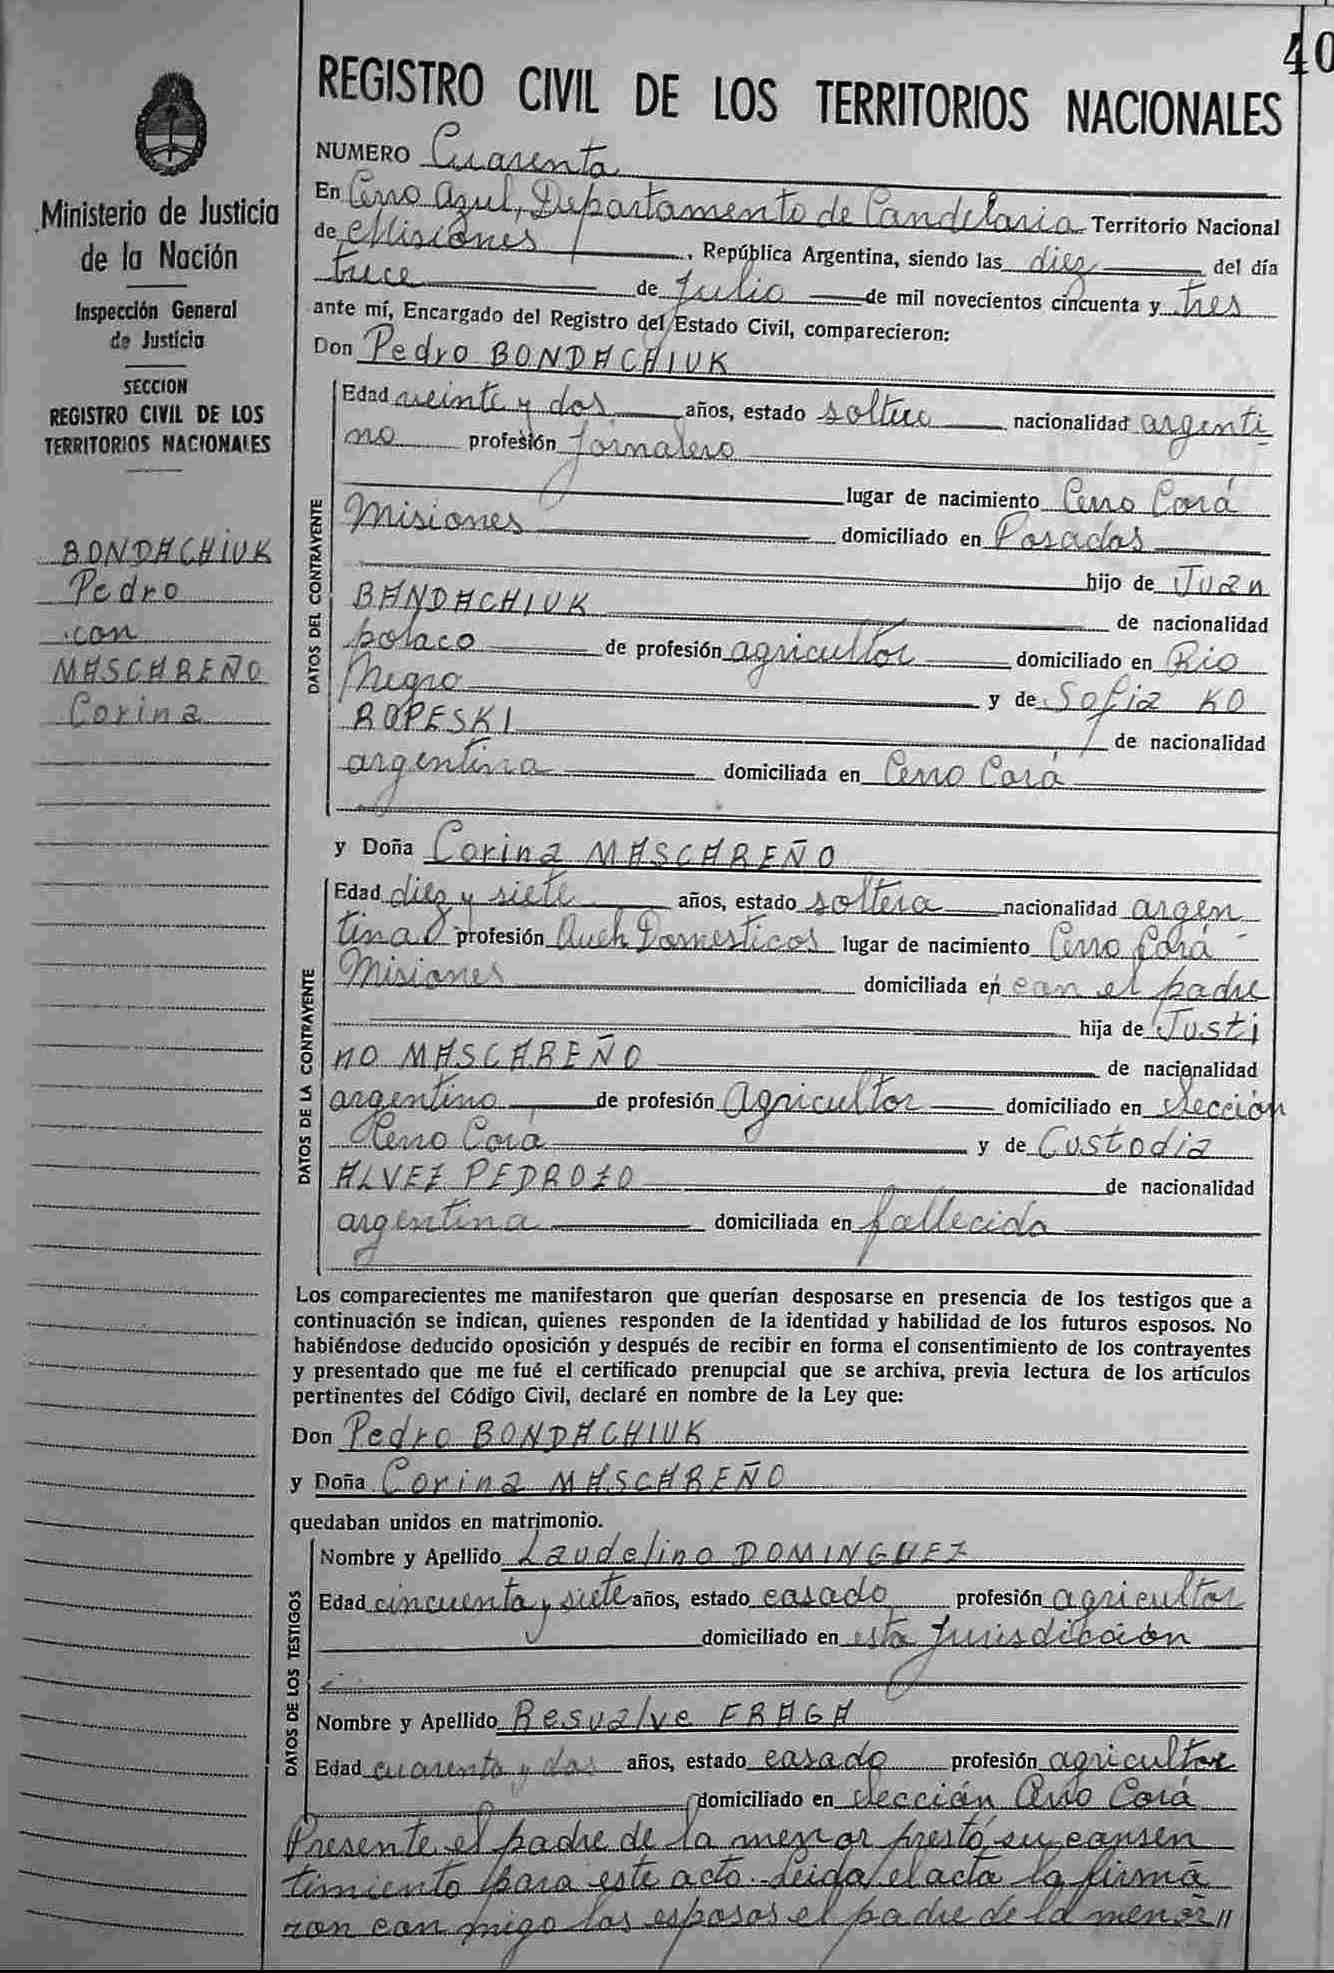 40
REGISTRO CIVIL DE LOS TERRITORIOS NACIONALES
Ministerio de Justicia
de la Nación
Inspección General
de Justicia
SECCION
REGISTRO CIVIL DE LOS
TERRITORIOS NACIONALES
BONDACHIUK
Pedro
con
MASCAREÑO
Corina
NUMERO Cuarenta
En Cerro Azul, Departamento de Candelaria Territorio Nacional
de Misiones, República Argentina, siendo las diez del día
trece de Julio de mil novecientos cincuenta y tres
ante mí, Encargado del Registro del Estado Civil, comparecieron:
Don Pedro BONDACHIUK
DATOS DEL CONTRAYENTE
Edad veinte y dos años, estado soltero nacionalidad argenti
no profesión Jornalero
lugar de nacimiento Cerro Corá
Misiones domiciliado en Posadas
hijo de Juan
BANDACHIUK de nacionalidad
polaco de profesión agricultor domiciliado en Rio
Negro y de Sofia KO
ROPESKI de nacionalidad
argentina domiciliada en Cerro Corá
y Doña Corina MASCAREÑO
DATOS DE LA CONTRAYENTE
Edad diez y siete años, estado soltera nacionalidad argen
tina profesión Queh Domesticos lugar de nacimiento Cerro Corá
Misiones domiciliada en con el padre
hija de Justi
no MASCAREÑO de nacionalidad
argentino de profesión Agricultor domiciliado en sección
Cerro Corá y de Custodia
ALVEZ PEDROZO de nacionalidad
argentina domiciliada en fallecida
Los comparecientes me manifestaron que querían desposarse en presencia de los testigos que a
continuación se indican, quienes responden de la identidad y habilidad de los futuros esposos. No
habiéndose deducido oposición y después de recibir en forma el consentimiento de los contrayentes
y presentado que me fué el certificado prenupcial que se archiva, previa lectura de los artículos
pertinentes del Código Civil, declaré en nombre de la Ley que:
Don Pedro BONDACHIUK
y Doña Corina MASCAREÑO
quedaban unidos en matrimonio.
DATOS DE LOS TESTIGOS
Nombre y Apellido Laudelino DOMINGUEZ
Edad cincuenta y siete años, estado casado profesión agricultor
domiciliado en esta Jurisdicción
Nombre y Apellido Resualve FRAGA
Edad cuarenta y dos años, estado casado profesión agricultor
domiciliado en sección Cerro Corá
Presente el padre de la menor prestó su consen
timiento para este acto. Leida el acta la firma
ron con migo los esposos el padre de la menor "